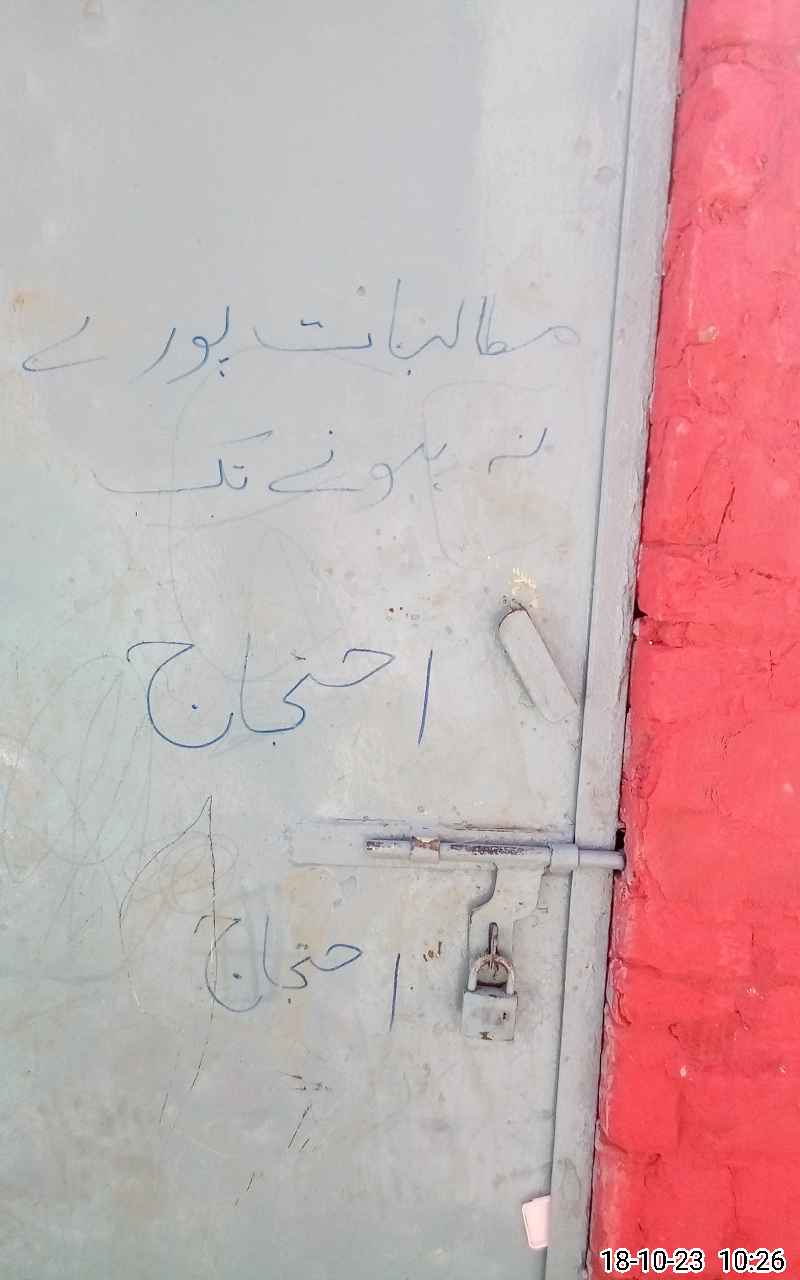 مطالبات پورے
نہ ہونے تک
احتجاج
احتجاج
18-10-23 10:26